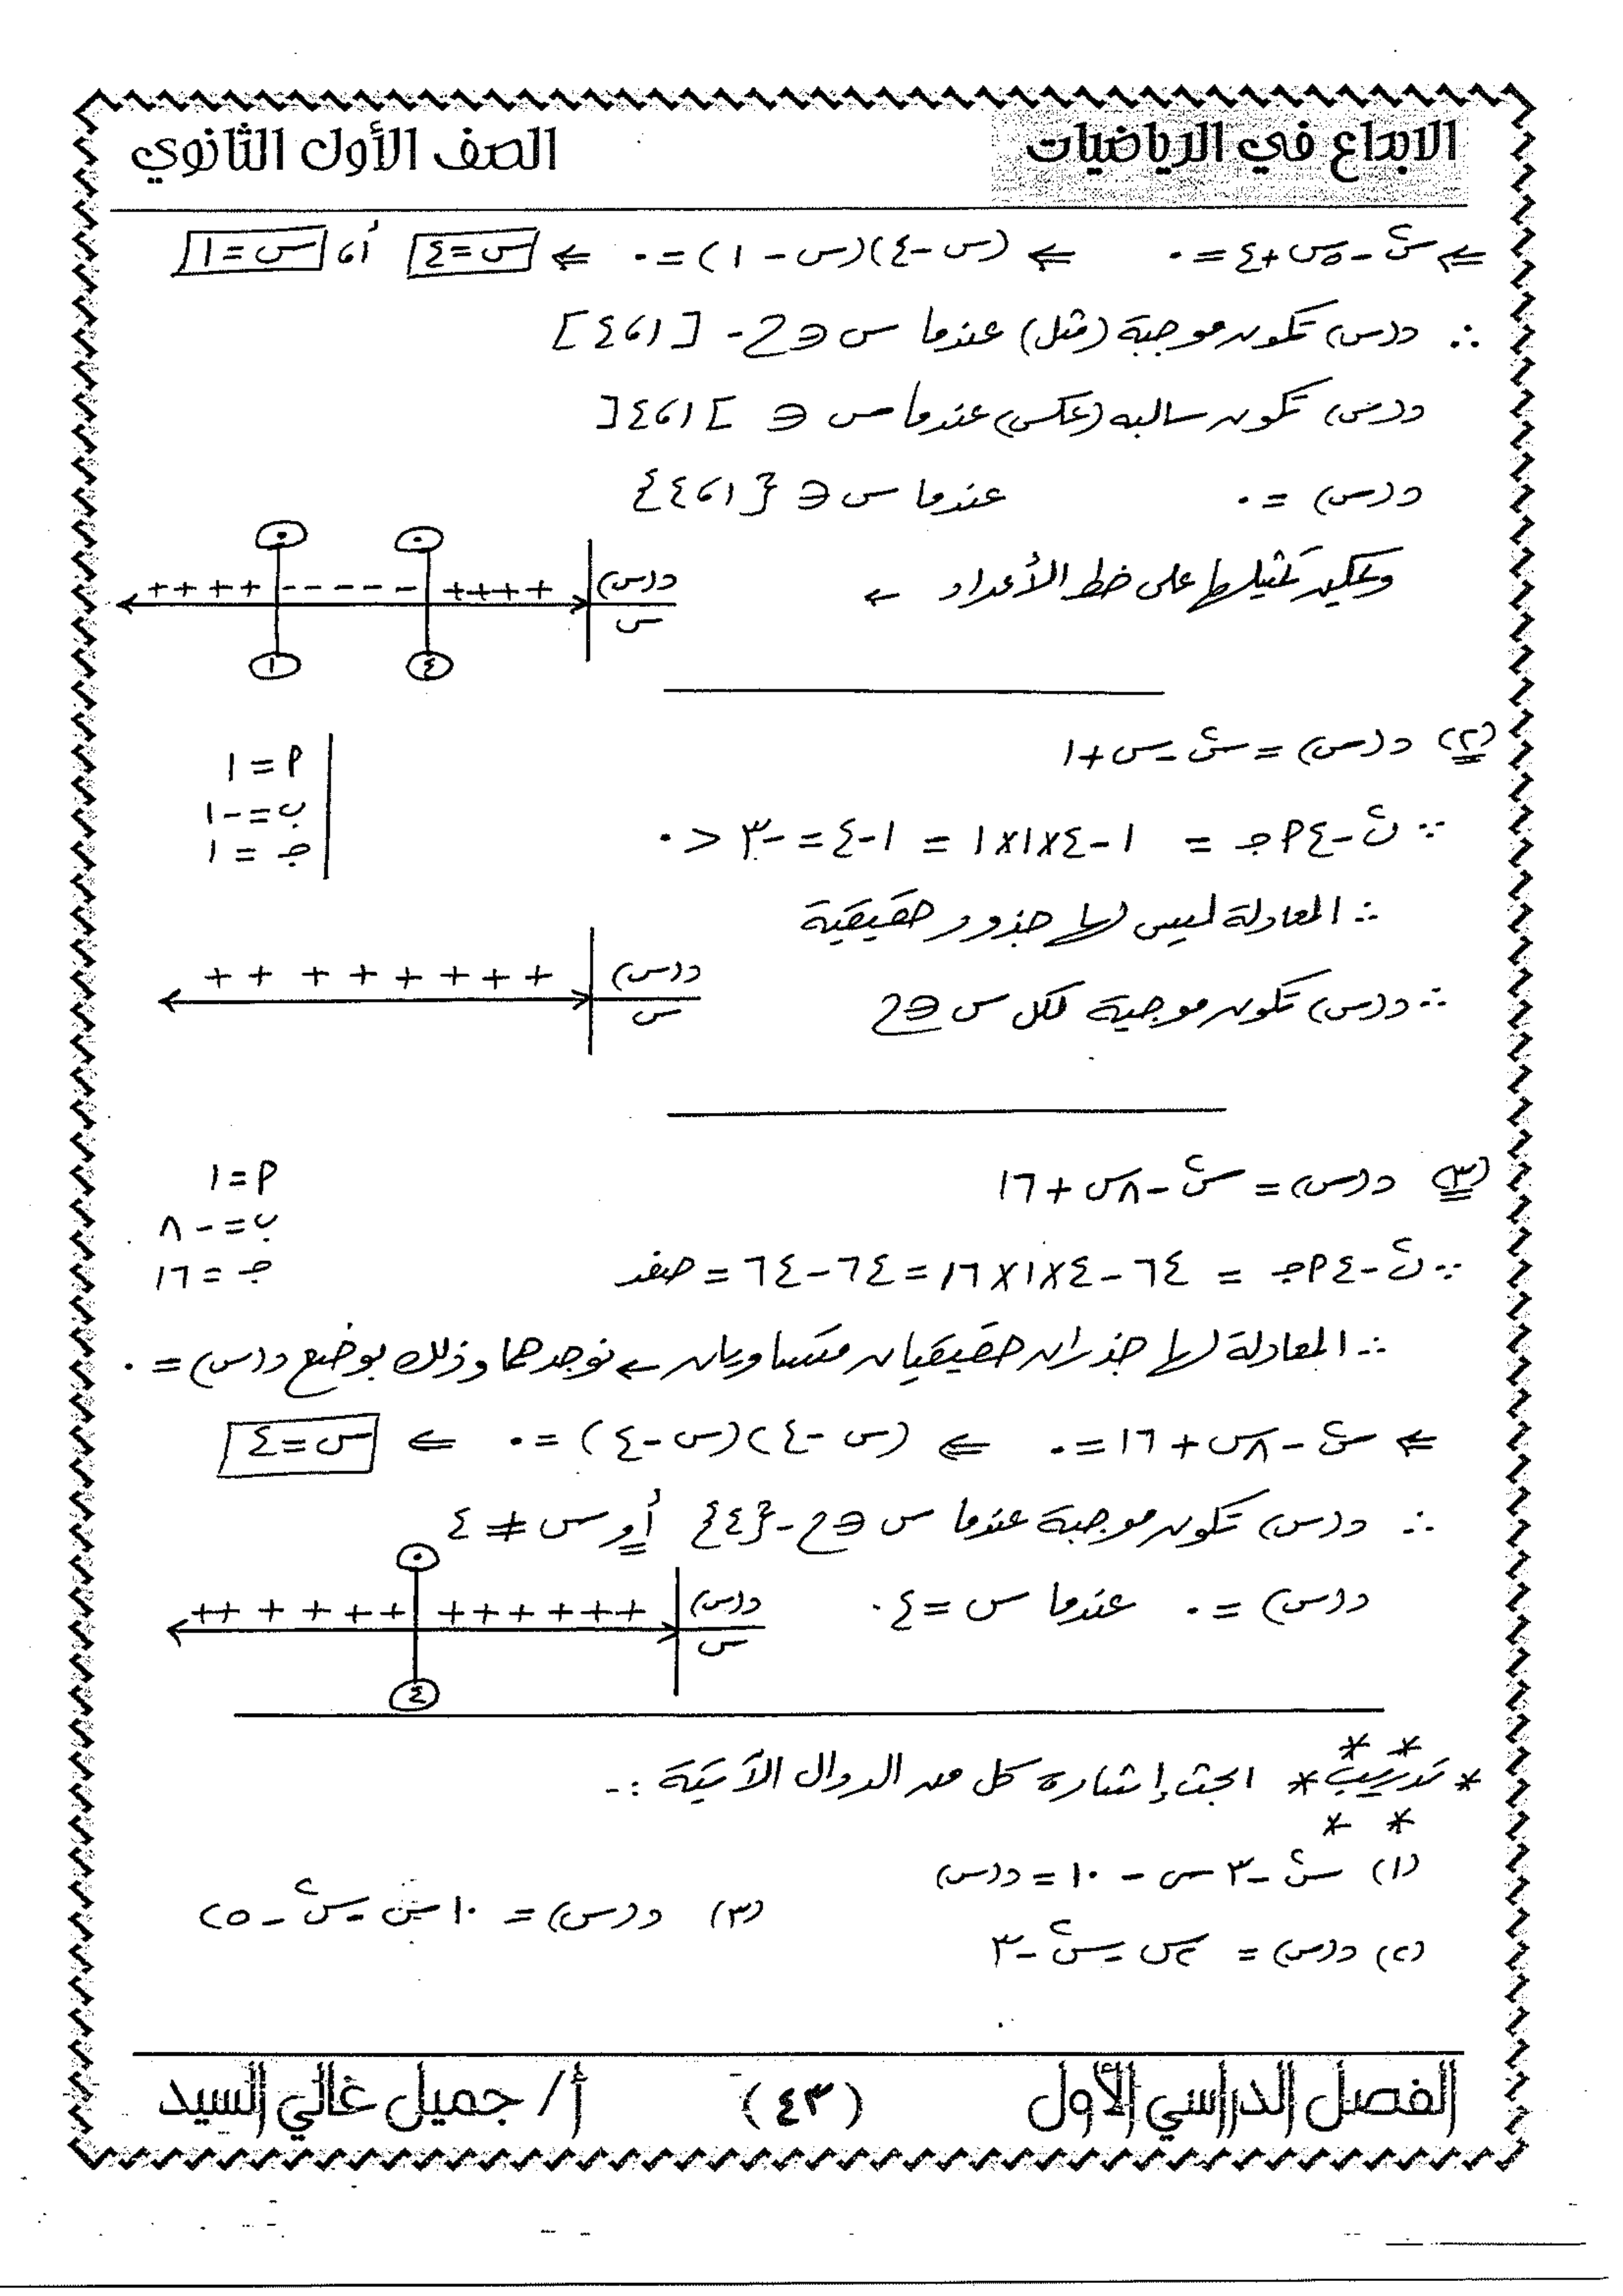 الابداع في الرياضيات
الصف الأول الثانوي
⇐ س٢ - ٥س + ٤ = ٠ ⇐ (س - ٤)(س - ١) = ٠ ⇐ س = ٤ ، أ، س = ١
∴ د(س) تكون موجبة (مثل) عندما س ∈ ح - [١، ٤]
د(س) تكون سالبه (عكس) عندما س ∈ ]١، ٤[
د(س) = ٠ عندما س ∈ {١، ٤}
ويمكن تمثيلها على خط الأعداد ←
٠ ٠
د(س) ++++ - - - - - ++++
س
٤ ١
(٢) د(س) = س٢ - س + ١
أ = ١
ب = -١
جـ = ١
∵ ب٢ - ٤أجـ = ١ - ٤×١×١ = ١ - ٤ = -٣ < ٠
∴ المعادلة ليس لها جذور حقيقية
د(س) + + + + + + + +
س
∴ د(س) تكون موجبة لكل س ∈ ح
(٣) د(س) = س٢ - ٨س + ١٦
أ = ١
ب = -٨
جـ = ١٦
∵ ب٢ - ٤أجـ = ٦٤ - ٤×١×١٦ = ٦٤ - ٦٤ = صفر
∴ المعادلة لها جذران حقيقيان متساويان ← نوجدهما وذلك بوضع د(س) = ٠
⇐ س٢ - ٨س + ١٦ = ٠ ⇐ (س - ٤)(س - ٤) = ٠ ⇐ س = ٤
∴ د(س) تكون موجبة عندما س ∈ ح - {٤} أو س ≠ ٤
د(س) = ٠ عندما س = ٤
٠
د(س) ++++++ + + + + ++
س
٤
* تدريب * ابحث إشارة كل من الدوال الآتية :-
(١) س٢ - ٣س - ١٠ = د(س)
(٢) د(س) = ٢س - س٢ - ٣
(٣) د(س) = ١٠س - س٢ - ٢٥
الفصل الدراسي الأول
(٤٣)
أ/ جميل غالي السيد